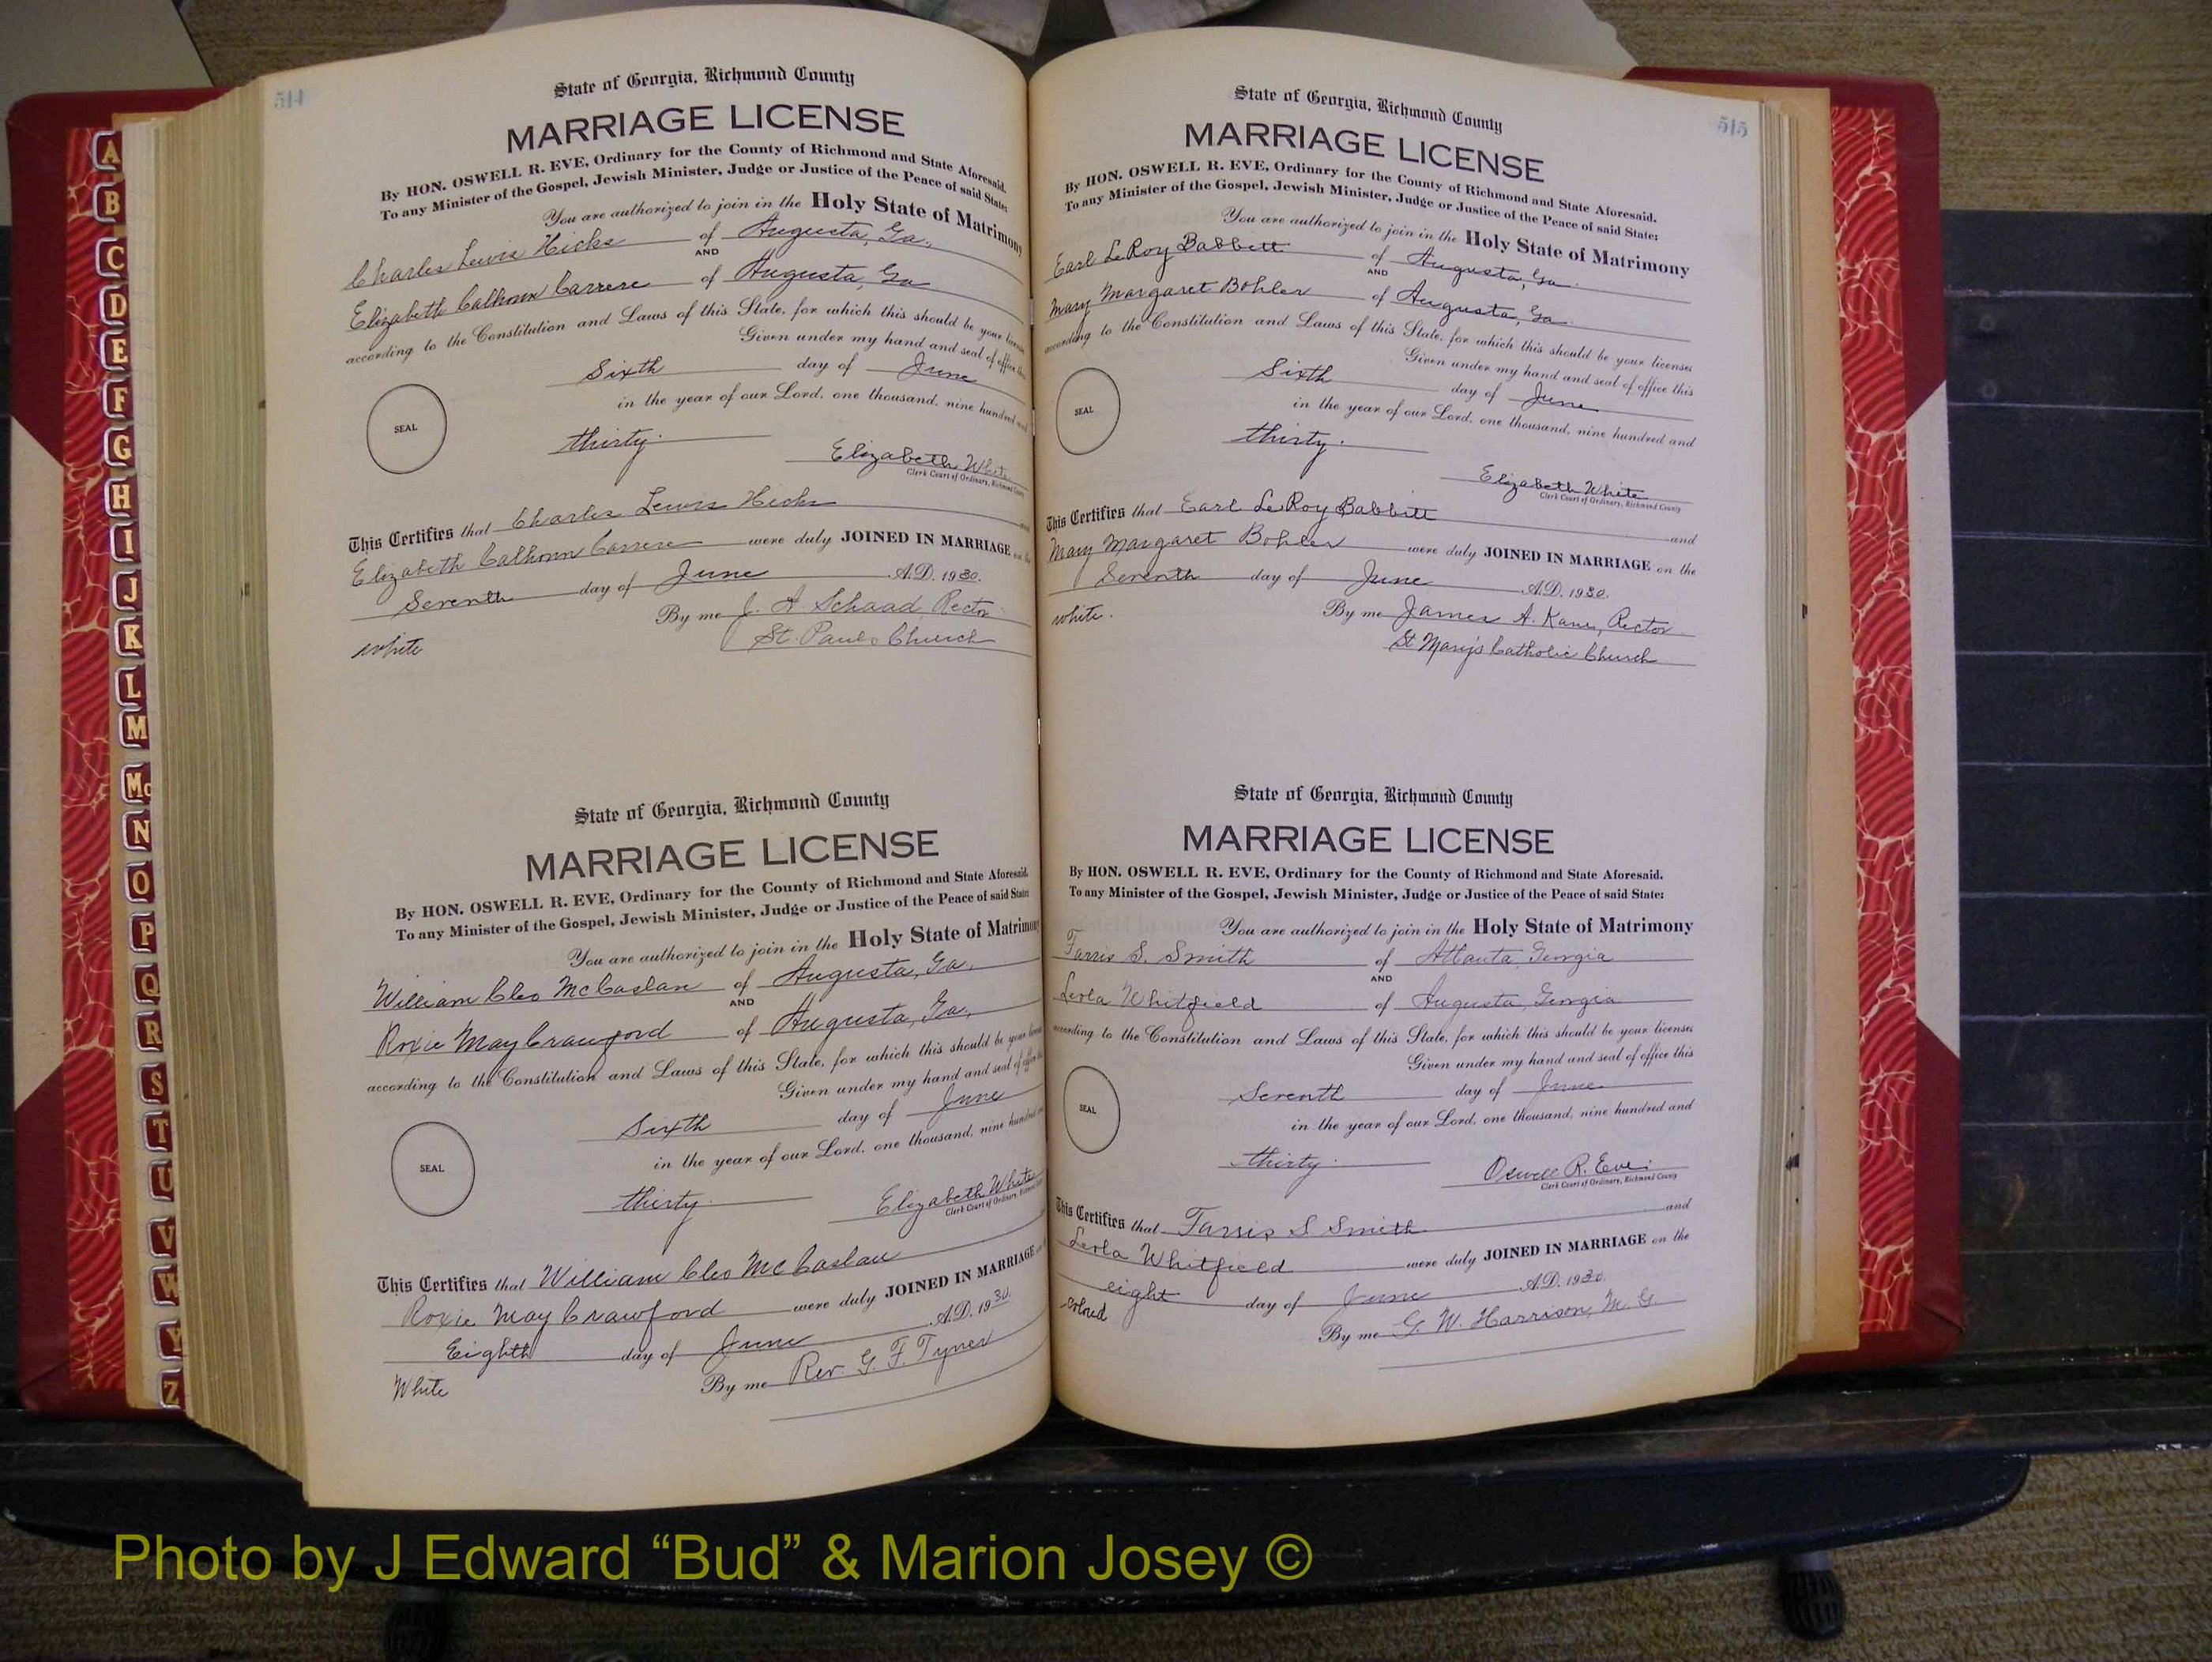 514
State of Georgia, Richmond County
MARRIAGE LICENSE
By HON. OSWELL R. EVE, Ordinary for the County of Richmond and State Aforesaid.
To any Minister of the Gospel, Jewish Minister, Judge or Justice of the Peace of said State:
You are authorized to join in the Holy State of Matrimony
Charles Lewis Hicks of Augusta, Ga.
AND
Elizabeth Calhoun Carrere of Augusta, Ga
according to the Constitution and Laws of this State, for which this should be your license
Given under my hand and seal of office this
Sixth day of June
in the year of our Lord, one thousand, nine hundred and
SEAL
thirty.
Elizabeth White
Clerk Court of Ordinary, Richmond County
This Certifies that Charles Lewis Hicks
Elizabeth Calhoun Carrere were duly JOINED IN MARRIAGE on the
Seventh day of June A.D. 1930.
By me J. A. Schaad, Rector
St. Paul's Church
white
State of Georgia, Richmond County
MARRIAGE LICENSE
By HON. OSWELL R. EVE, Ordinary for the County of Richmond and State Aforesaid.
To any Minister of the Gospel, Jewish Minister, Judge or Justice of the Peace of said State:
You are authorized to join in the Holy State of Matrimony
William Cleo McCaslan of Augusta, Ga.
AND
Roxie May Crawford of Augusta, Ga.
according to the Constitution and Laws of this State, for which this should be your license
Given under my hand and seal of office this
Sixth day of June
in the year of our Lord, one thousand, nine hundred and
SEAL
thirty.
Elizabeth White
Clerk Court of Ordinary, Richmond County
This Certifies that William Cleo McCaslan
Roxie May Crawford were duly JOINED IN MARRIAGE on
Eighth day of June A.D. 1930.
By me Rev. G. F. Tyner
White
515
State of Georgia, Richmond County
MARRIAGE LICENSE
By HON. OSWELL R. EVE, Ordinary for the County of Richmond and State Aforesaid.
To any Minister of the Gospel, Jewish Minister, Judge or Justice of the Peace of said State:
You are authorized to join in the Holy State of Matrimony
Earl LeRoy Babbitt of Augusta, Ga.
AND
Mary Margaret Bohler of Augusta, Ga.
according to the Constitution and Laws of this State, for which this should be your license
Given under my hand and seal of office this
Sixth day of June
in the year of our Lord, one thousand, nine hundred and
SEAL
thirty.
Elizabeth White
Clerk Court of Ordinary, Richmond County
This Certifies that Earl LeRoy Babbitt and
Mary Margaret Bohler were duly JOINED IN MARRIAGE on the
Seventh day of June A.D. 1930.
white. By me James A. Kane, Rector
St Mary's Catholic Church
State of Georgia, Richmond County
MARRIAGE LICENSE
By HON. OSWELL R. EVE, Ordinary for the County of Richmond and State Aforesaid.
To any Minister of the Gospel, Jewish Minister, Judge or Justice of the Peace of said State:
You are authorized to join in the Holy State of Matrimony
Farris S. Smith of Atlanta, Georgia
AND
Lerla Whitfield of Augusta, Georgia
according to the Constitution and Laws of this State, for which this should be your license
Given under my hand and seal of office this
Seventh day of June
in the year of our Lord, one thousand, nine hundred and
SEAL
thirty.
Oswell R. Eve.
Clerk Court of Ordinary, Richmond County
This Certifies that Farris S Smith and
Lerla Whitfield were duly JOINED IN MARRIAGE on the
eight day of June A.D. 1930.
colored By me G. W. Harrison, M. G.
A
B
C
D
E
F
G
H
I
J
K
L
M
Mc
N
O
P
Q
R
S
T
U
V
W
Y
Z
Photo by J Edward “Bud” & Marion Josey ©